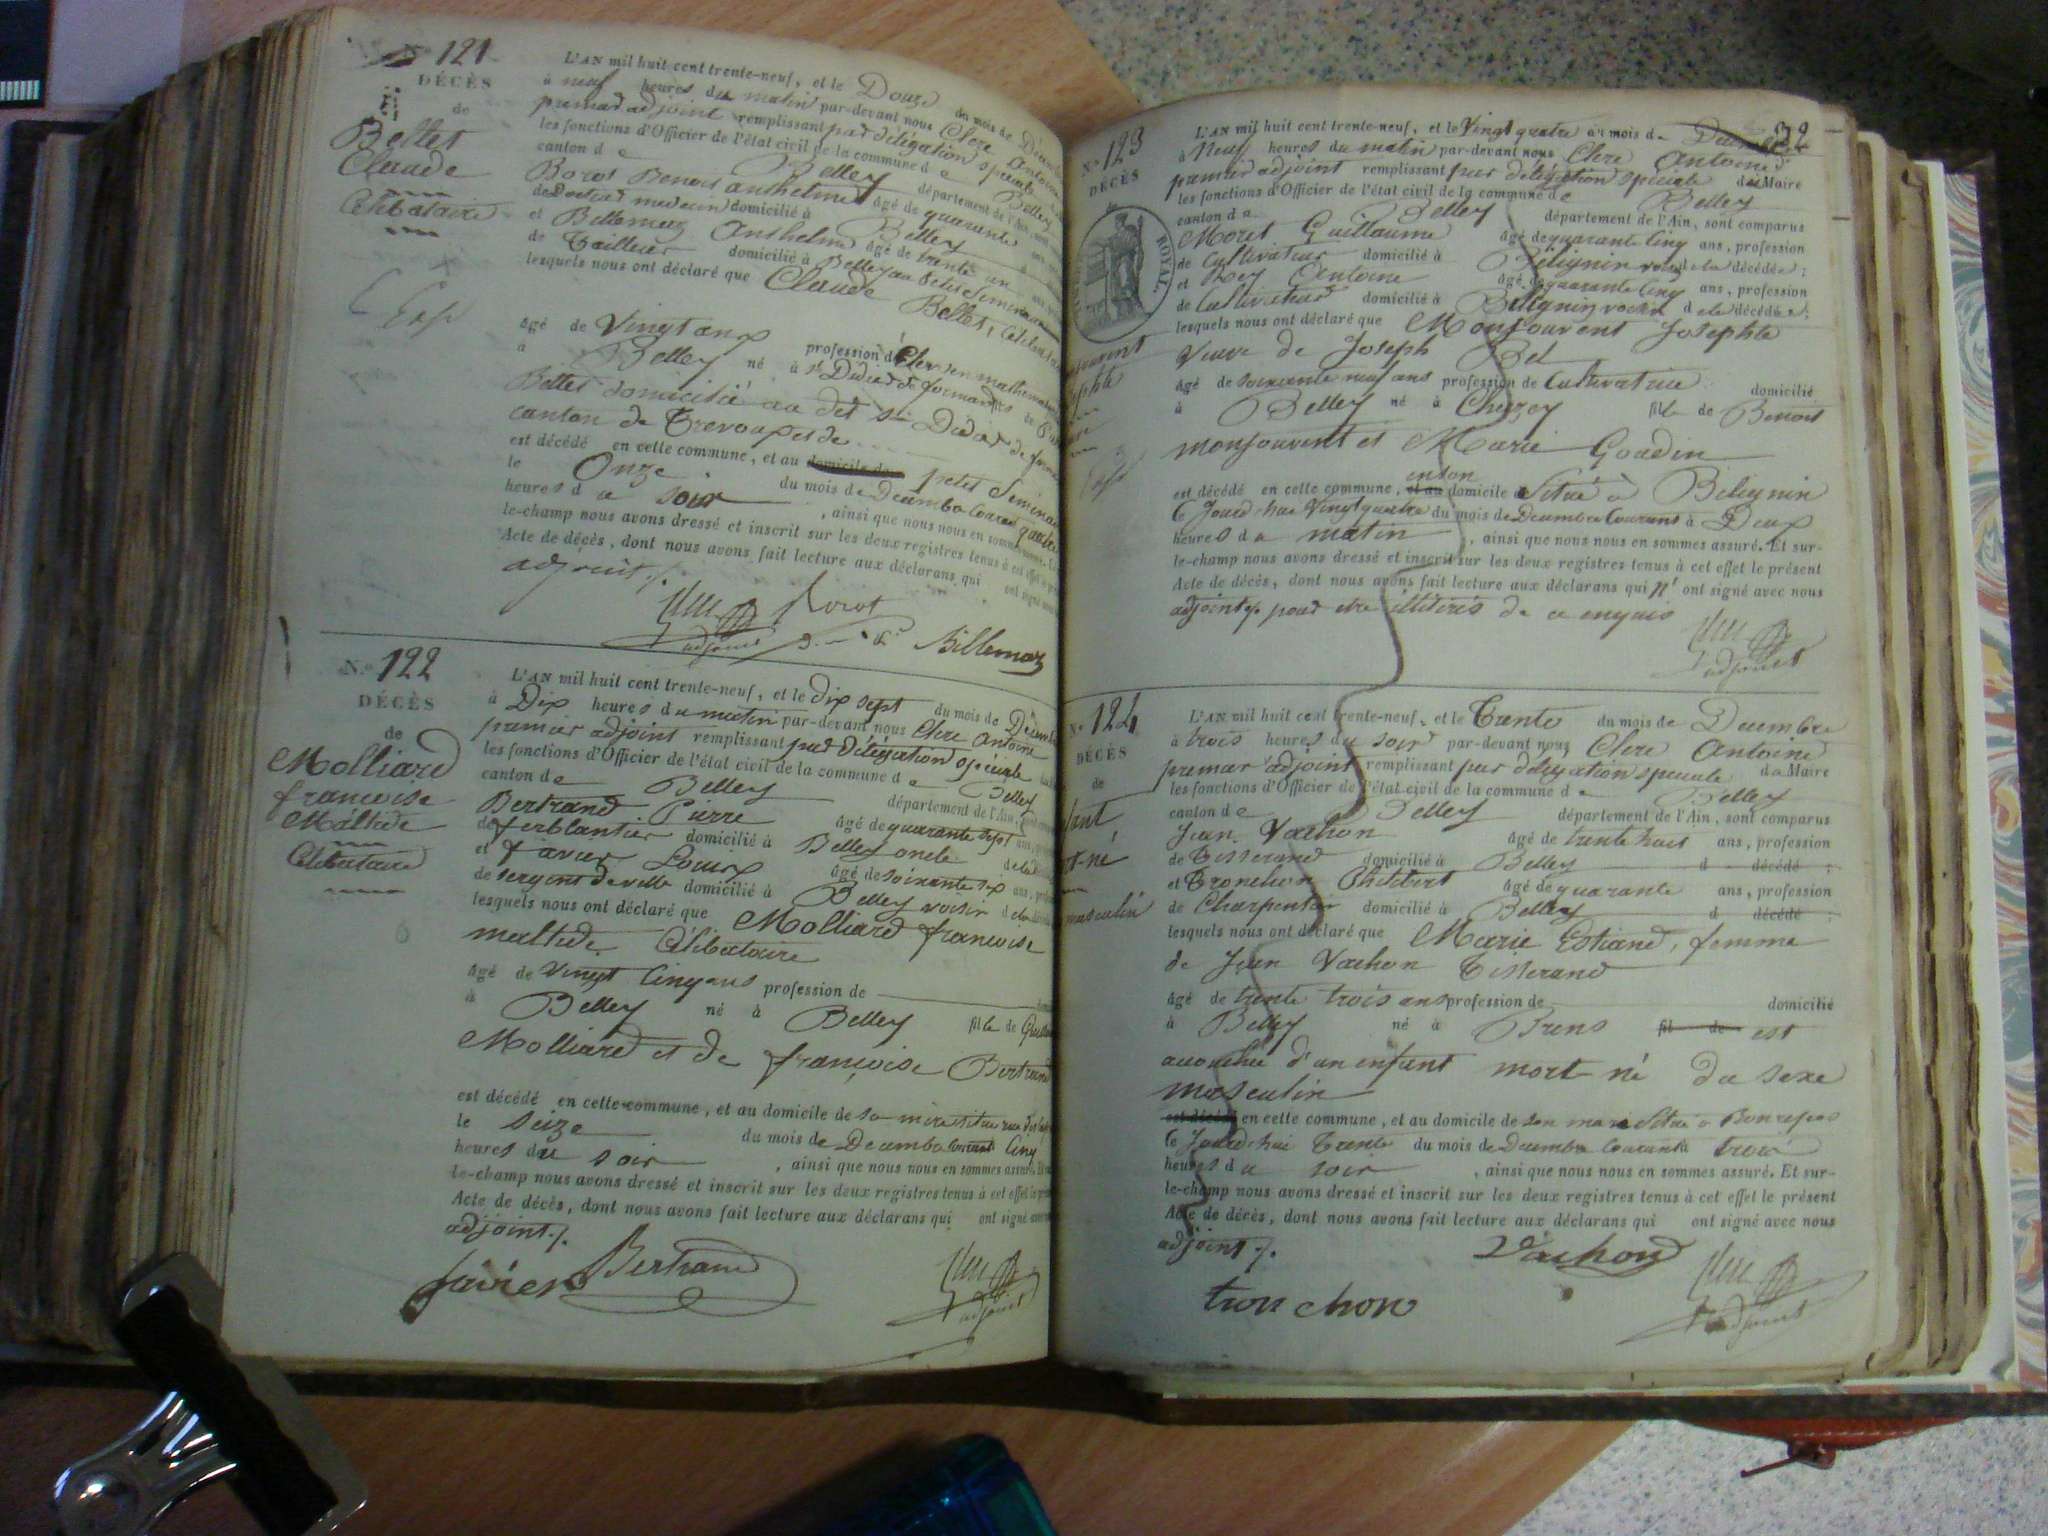 N.º 121
DÉCÈS
de
Bellet
Claude
Célibataire
L'AN mil huit cent trente-neuf, et le Douze du mois de
à neuf heures du matin par-devant nous Clerc Antoine
premier adjoint remplissant par délégation spéciale
les fonctions d'Officier de l'état civil de la commune de Belley
canton de Belley département de l'Ain
Benoit Anthelme âgé de quarante
de Docteur medecin domicilié à Belley
et Billemaz Anthelme âgé de trente un
de Taillieur domicilié à Belley au Petit Seminaire
lesquels nous ont déclaré que Claude Bellet,
âgé de Vingt ans profession d
à Belley né à St Didier de formans
Bellet domicilié au dit St Didier de
canton de Trevoux et de
est décédé en cette commune, et au domicile de petit Seminaire
le Onze du mois de Decembre Courant quatre
heures du soir , ainsi que nous nous en sommes
le-champ nous avons dressé et inscrit sur les deux registres tenus à cet effet
Acte de décès, dont nous avons fait lecture aux déclarans qui ont signé
adjoint ./.
adjoint
Billemaz
N.º 122
DÉCÈS
de
Molliard
francoise
Maltide
Célibataire
L'AN mil huit cent trente-neuf, et le dix sept du mois de
à Dix heures du matin par-devant nous Clerc Antoine
premier adjoint remplissant par délégation spéciale
les fonctions d'Officier de l'état civil de la commune de Belley
canton de Belley département de l'Ain,
Bertrand Pierre âgé de quarante sept ans,
de ferblantier domicilié à Belley oncle
et favier Louis âgé de soixante six ans,
de sergent de ville domicilié à Belley voisin de la
lesquels nous ont déclaré que Molliard francoise
maltide Célibataire
âgé de vingt Cinq ans profession de
à Belley né à Belley fille de
Molliard et de françoise Bertrand
est décédé en cette commune, et au domicile de sa mère situé rue
le seize du mois de Decembre courant Cinq
heures du soir , ainsi que nous nous en sommes assuré.
le-champ nous avons dressé et inscrit sur les deux registres tenus à cet effet le
Acte de décès, dont nous avons fait lecture aux déclarans qui ont signé
adjoint ./.
favier Bertrand
adjoint
32
N.º 123
DÉCÈS
ROYAL.
L'AN mil huit cent trente-neuf, et le Vingt quatre du mois de
à Neuf heures du matin par-devant nous Clerc Antoine
premier adjoint remplissant par délégation spéciale du Maire
les fonctions d'Officier de l'état civil de la commune de Belley
canton de Belley département de l'Ain, sont comparus
Moret Guillaume âgé de quarante Cinq ans, profession
de Cultivateur domicilié à Bélignin voisin de la décédée ;
et Rey Antoine âgé de quarante Cinq ans, profession
de Cultivateur domicilié à Bélignin voisin de la décédée ;
lesquels nous ont déclaré que Monjouvent Josephte
veuve de Joseph Bel
âgé de soixante neuf ans profession de Cultivatrice domicilié
à Belley né à Cheyzey fille de Benoit
monjouvent et Marie Goddin
enson
est décédé en cette commune, et au domicile Situé à Bélignin
le Jourd'hui Vingt quatre du mois de Decembre Courant à Deux
heures du matin , ainsi que nous nous en sommes assuré. Et sur-
le-champ nous avons dressé et inscrit sur les deux registres tenus à cet effet le présent
Acte de décès, dont nous avons fait lecture aux déclarans qui n' ont signé avec nous
adjoint ./. pour etre illiterés de ce enquis
adjoint
N.º 124
DÉCÈS
de
masculin
L'AN mil huit cent trente-neuf, et le Trente du mois de Decembre
à trois heures du soir par-devant nous Clerc Antoine
premier adjoint remplissant par délégation spéciale du Maire
les fonctions d'Officier de l'état civil de la commune de Belley
canton de Belley département de l'Ain, sont comparus
Jean Vachon âgé de trente huit ans, profession
de Tisserand domicilié à Belley d décédé ;
et Tronchon Philibert âgé de quarante ans, profession
de Charpentier domicilié à Belley d décédé ;
lesquels nous ont déclaré que Marie Estiand, femme
de Jean Vachon Tisserand
âgé de trente trois ans profession de domicilié
à Belley né à Brens fil de est
accouchée d'un enfant mort né du sexe
masculin
est décédé en cette commune, et au domicile de son mari Situé à Bonrepos
le Jourd'hui Trente du mois de Decembre Courant à trois
heures du soir , ainsi que nous nous en sommes assuré. Et sur-
le-champ nous avons dressé et inscrit sur les deux registres tenus à cet effet le présent
Acte de décès, dont nous avons fait lecture aux déclarans qui ont signé avec nous
adjoint ./.
Vachond
tron chon
adjoint